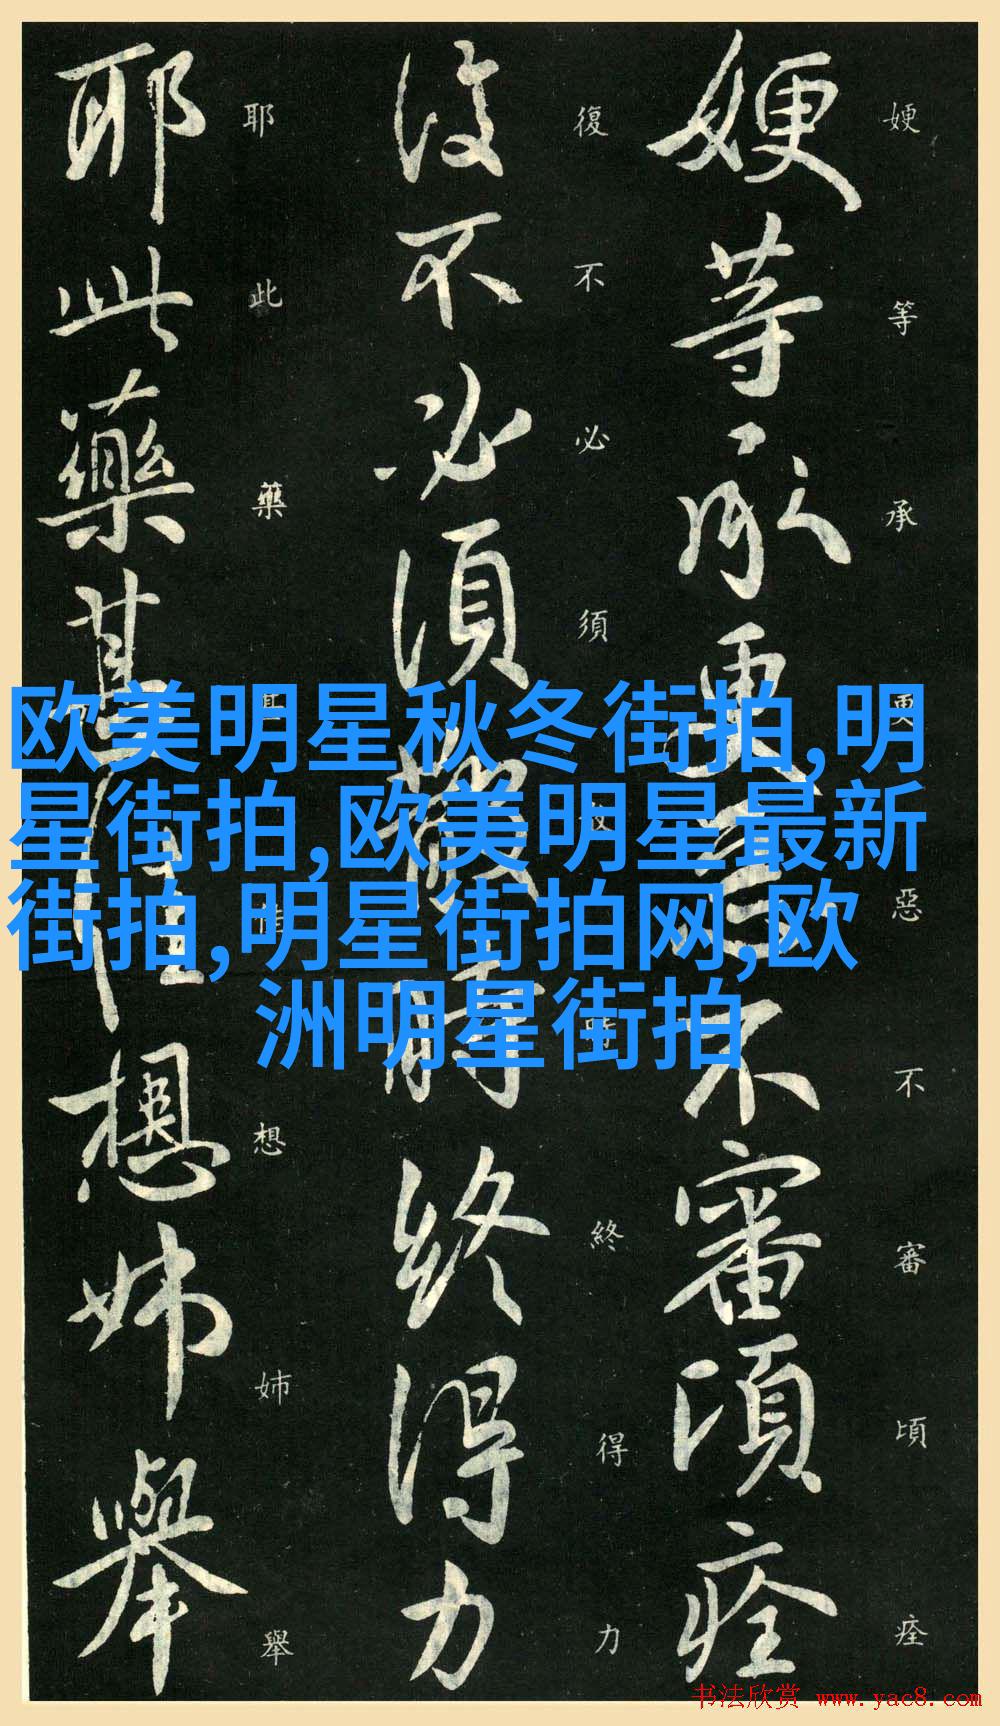 㛐等承更惡不審頃痊
㛐等承更惡不審頃痊
復不必須時終得力
復不必須時終得力
耶此藥甚佳想姉舉
耶此藥甚佳想姉舉
欧美明星秋冬街拍,明
星街拍,欧美明星最新
街拍,明星街拍网,欧
洲明星街拍
书法欣赏 www.yac8.com